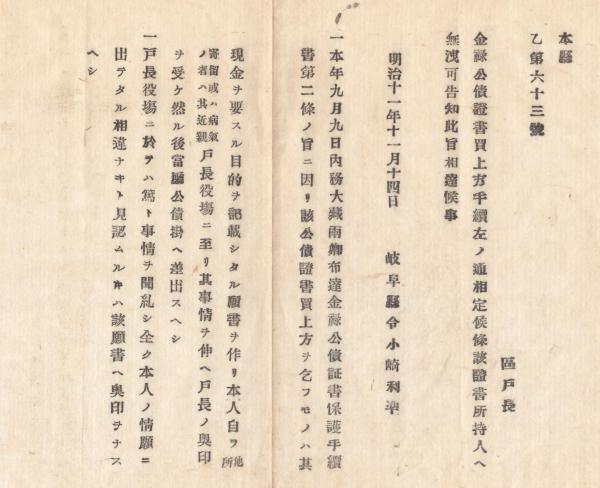 本縣
乙第六十三號
區戸長
金祿公債證書買上方手續左ノ通相定候條該證書所持人ヘ
無洩可告知此旨相達候事
明治十一年十一月十四日　岐阜縣令小崎利準
一本年九月九日内務大藏兩卿布達金祿公債証書保護手續
書第二條ノ旨ニ因リ該公債證書買上方ヲ乞フモノハ其
現金ヲ要スル目的ヲ記載シタル願書ヲ作リ本人自ラ他所
寄留或ハ病氣ノ者ハ其近親戸長役塲ニ至リ其事情ヲ伸ヘ戸長ノ奥印
ヲ受ケ然ル後當廳公債掛ヘ差出スヘシ
一戸長役塲ニ於テハ篤ト事情ヲ聞糺シ全ク本人ノ情願ニ
出テタル相違ナキト見認ムルキハ該願書ヘ奥印ヲナス
ヘシ